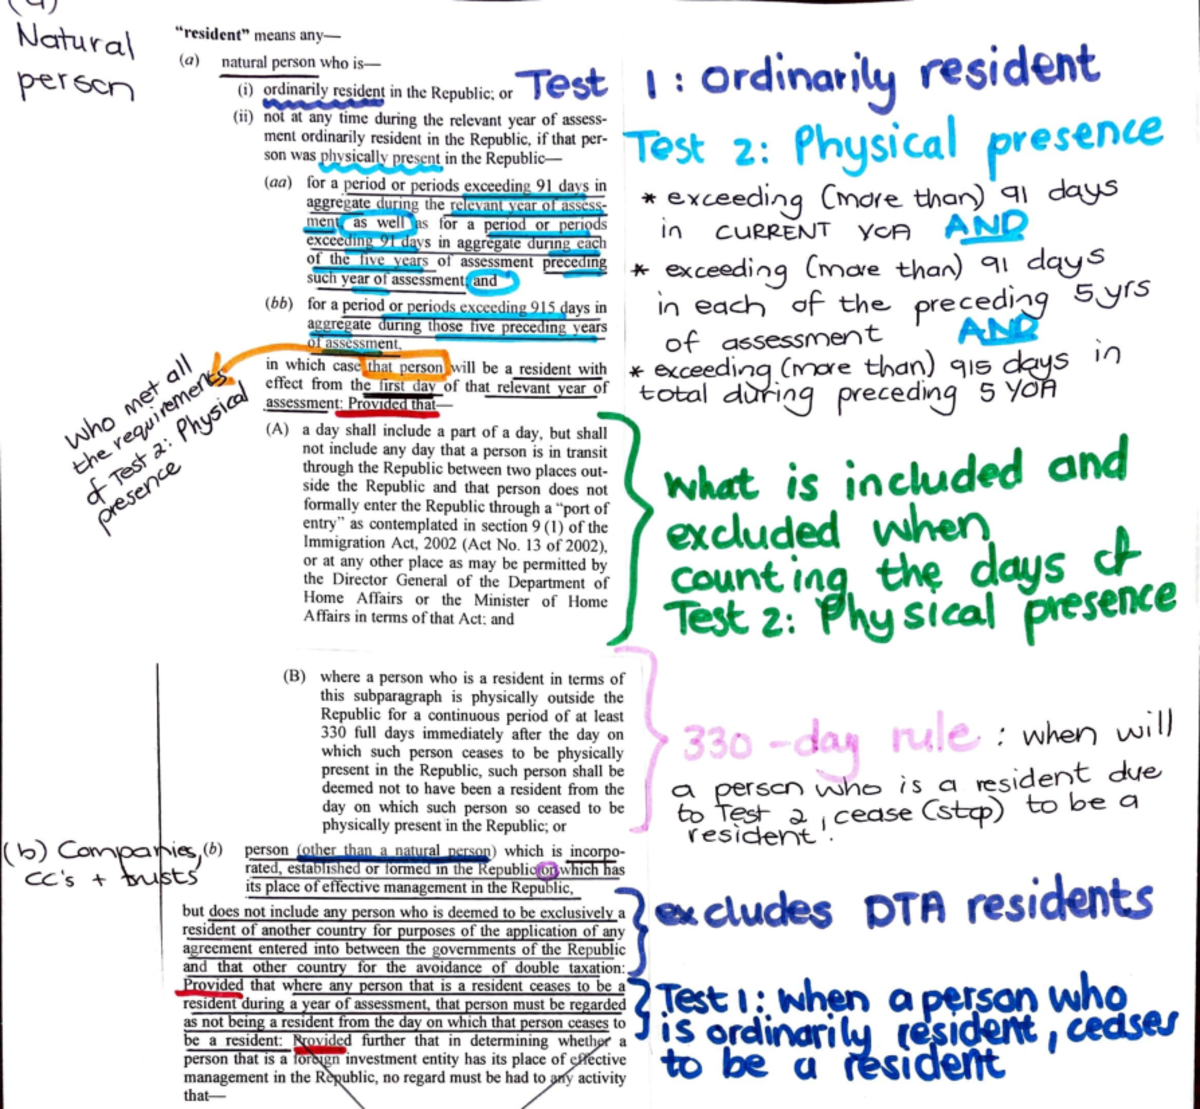 (a)
Natural
person
“resident” means any—
(a) natural person who is—
(i) ordinarily resident in the Republic; or
Test 1: Ordinarily resident
(ii) not at any time during the relevant year of assess-
ment ordinarily resident in the Republic, if that per-
son was physically present in the Republic—
Test 2: Physical presence
(aa) for a period or periods exceeding 91 days in
aggregate during the relevant year of assess-
ment, as well as for a period or periods
exceeding 91 days in aggregate during each
of the five years of assessment preceding
such year of assessment; and
(bb) for a period or periods exceeding 915 days in
aggregate during those five preceding years
of assessment,
* exceeding (more than) 91 days
in CURRENT YOA AND
* exceeding (more than) 91 days
in each of the preceding 5 yrs
of assessment AND
* exceeding (more than) 915 days in
total during preceding 5 YOA
in which case that person will be a resident with
effect from the first day of that relevant year of
assessment: Provided that—
Who met all
the requirements
of Test 2: Physical
presence
(A) a day shall include a part of a day, but shall
not include any day that a person is in transit
through the Republic between two places out-
side the Republic and that person does not
formally enter the Republic through a “port of
entry” as contemplated in section 9 (1) of the
Immigration Act, 2002 (Act No. 13 of 2002),
or at any other place as may be permitted by
the Director General of the Department of
Home Affairs or the Minister of Home
Affairs in terms of that Act; and
What is included and
excluded when
counting the days of
Test 2: Physical presence
(B) where a person who is a resident in terms of
this subparagraph is physically outside the
Republic for a continuous period of at least
330 full days immediately after the day on
which such person ceases to be physically
present in the Republic, such person shall be
deemed not to have been a resident from the
day on which such person so ceased to be
physically present in the Republic; or
330-day rule : when will
a person who is a resident due
to Test 2, cease (stop) to be a
resident.
(b) Companies,
CC's + trusts
(b) person (other than a natural person) which is incorpo-
rated, established or formed in the Republic or which has
its place of effective management in the Republic,
but does not include any person who is deemed to be exclusively a
resident of another country for purposes of the application of any
agreement entered into between the governments of the Republic
and that other country for the avoidance of double taxation:
excludes DTA residents
Provided that where any person that is a resident ceases to be a
resident during a year of assessment, that person must be regarded
as not being a resident from the day on which that person ceases to
be a resident: Provided further that in determining whether a
person that is a foreign investment entity has its place of effective
management in the Republic, no regard must be had to any activity
that—
Test 1: when a person who
is ordinarily resident, ceases
to be a resident